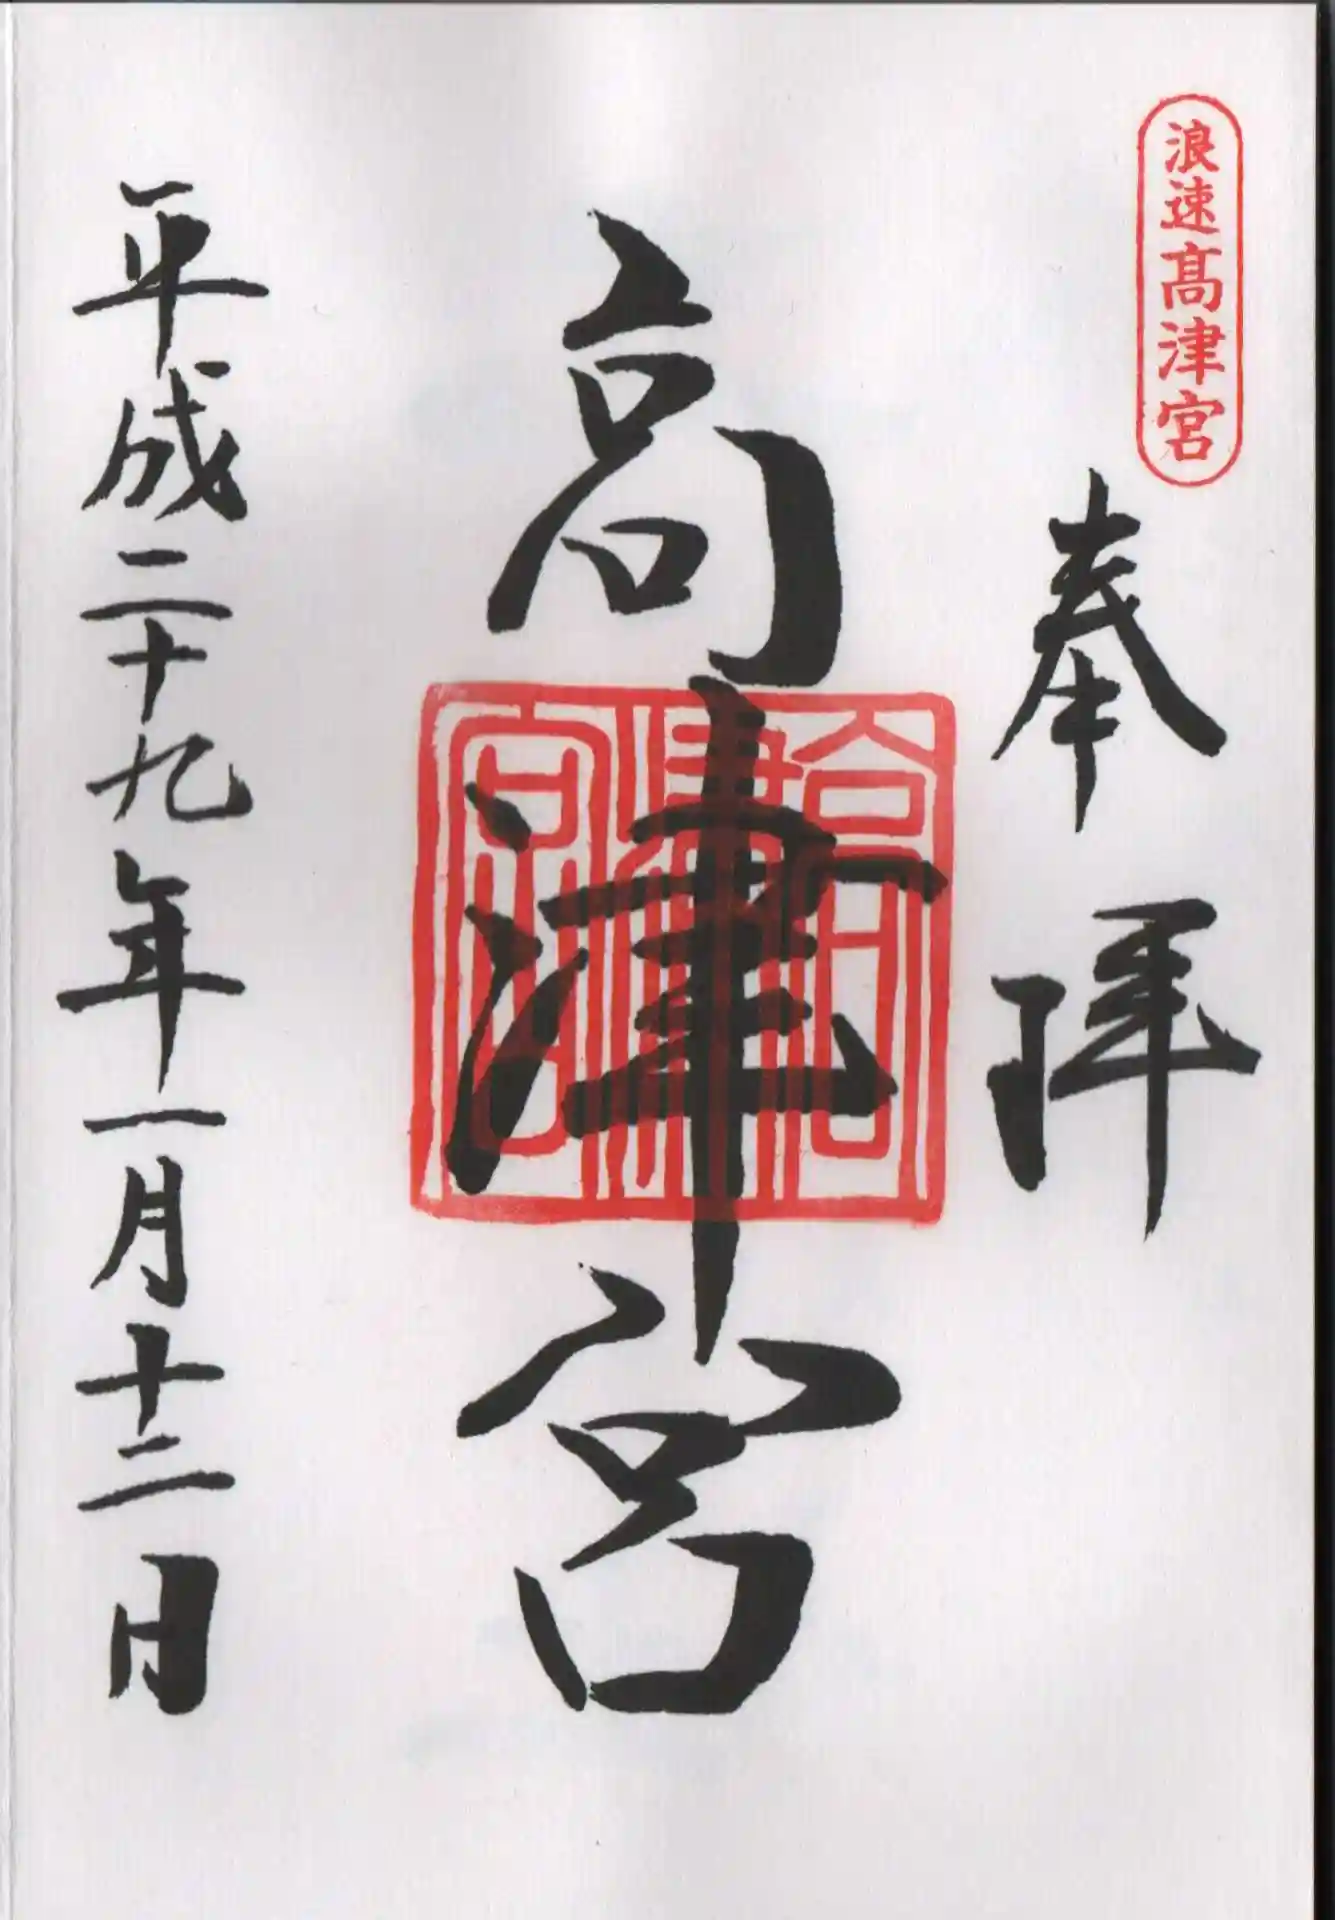 浪速髙津宮
奉拝
高津宮
高津宮
平成二十九年一月十二日